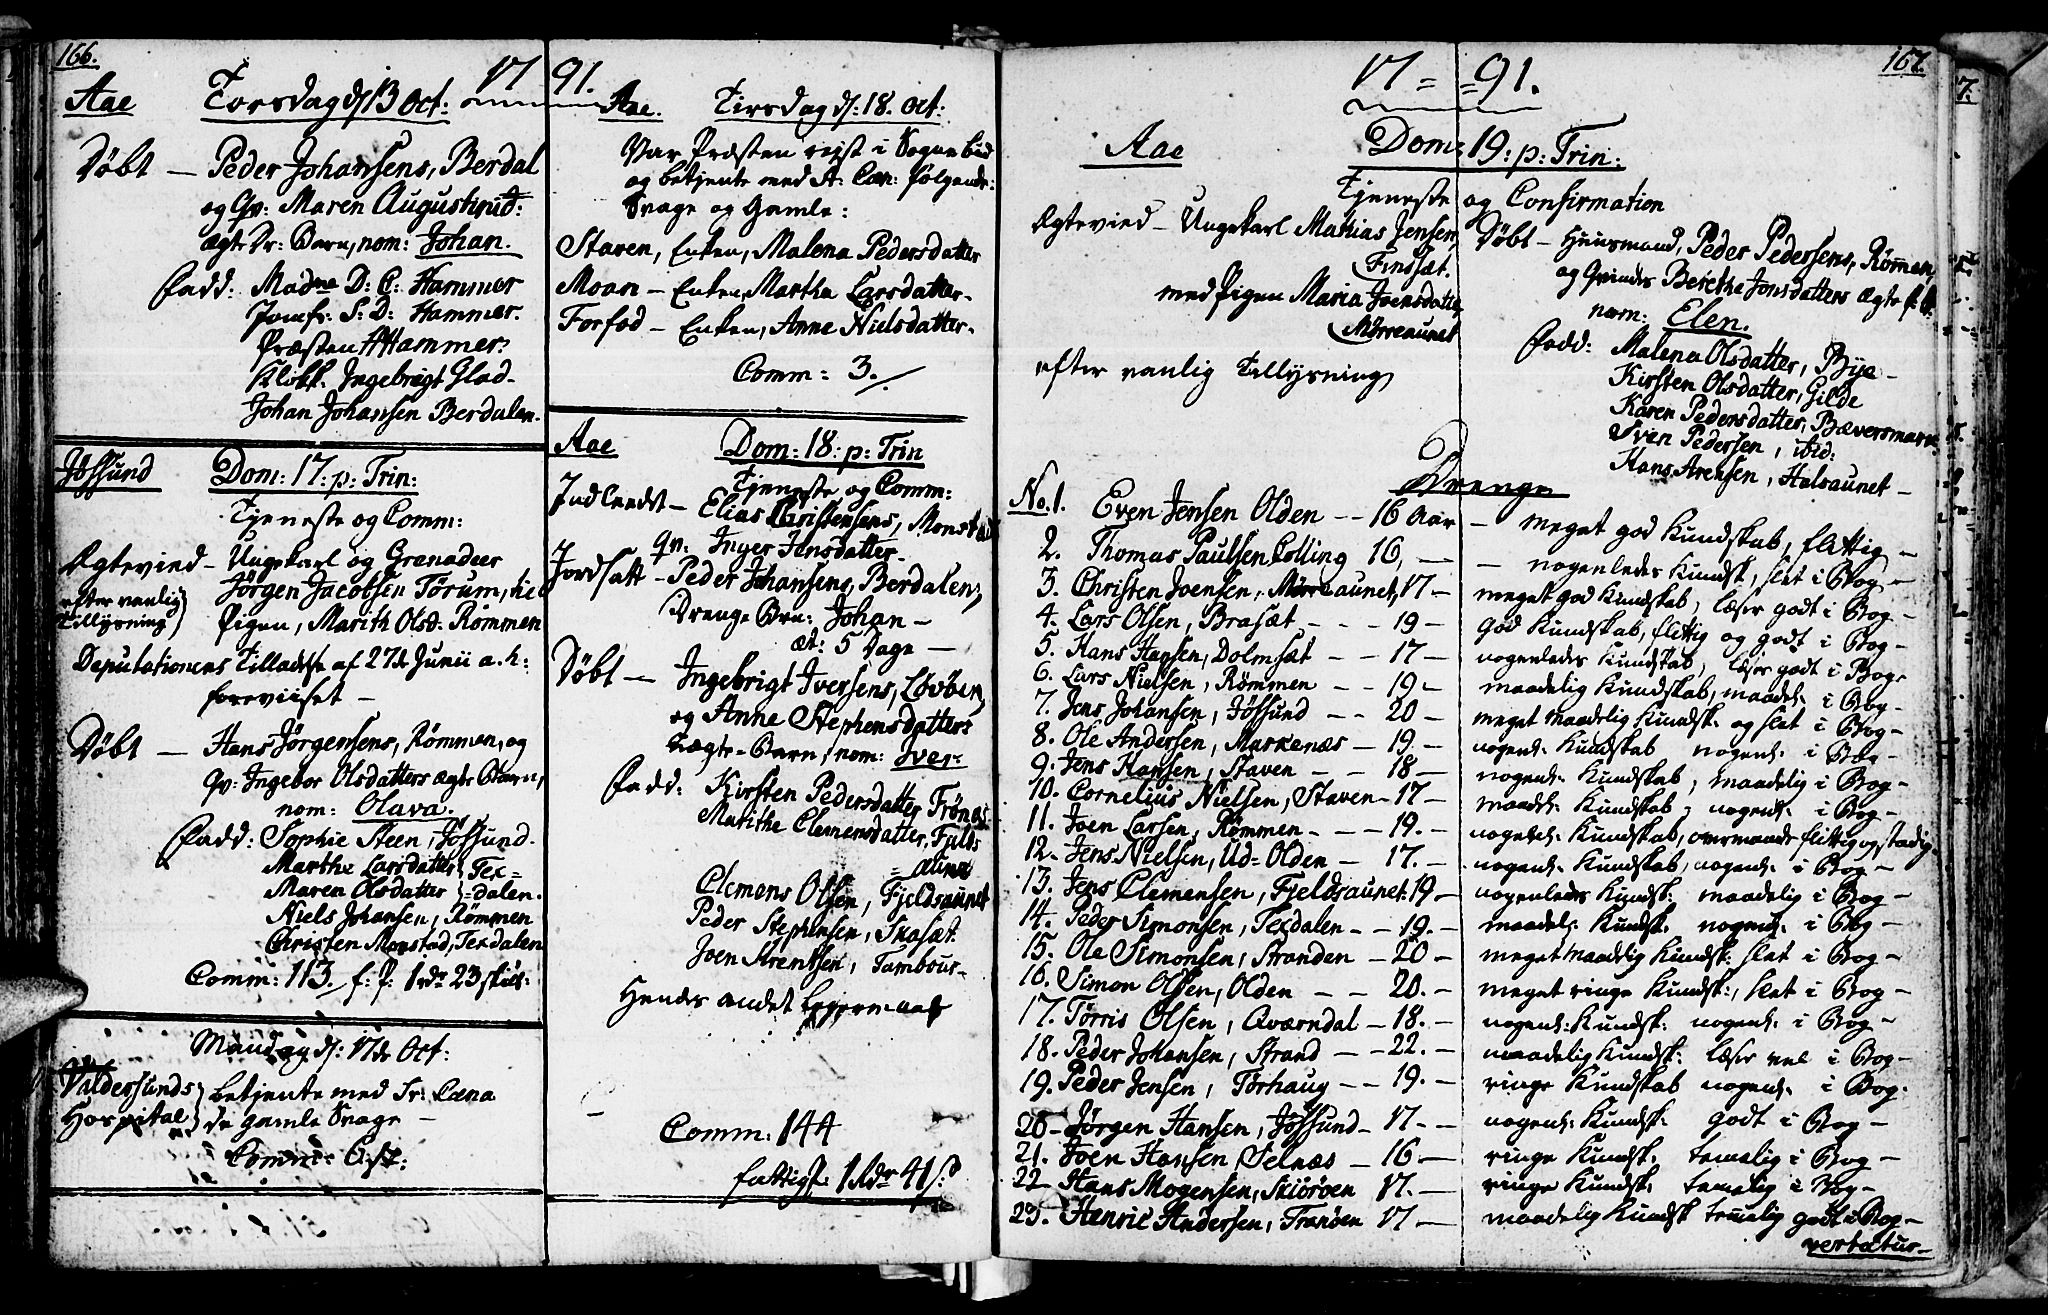 166.
17 91.
Aae Torsdag d: 13 Oct:
Døbt — Peder Johansens, Berdal
og Qv: Maren Augustinud:
ægte Dr: Barn, nom: Johan.
Fadd: Mad.ne D: C: Hammer
Jomfr: S: D: Hammer.
Præsten HHammer.
Klokk. Ingebrigt Glad.
Johan Johansen Berdalen.
Jøssund Dom: 17: p: Trin:
Tjeneste og Comm:
Ægtevied — Ungekarl og Grenadeer
Jørgen Jacobsen Tørum,
efter vanlig
Tillysning
Pigen, Marith Olsd: Rømmen
Deputationens Tilladelse af 27de Junii a. h:
foreviiset —
Døbt — Hans Jørgensens, Rømmen, og
Qv: Ingebor Olsdatters ægte Barn,
nom: Olava.
Fadd: Sophie Steen, Jøssund.
Marthe Larsdatter Tex=
Maren Olsdatter =dalen.
Niels Johansen, Rømmen
Christen Monstad, Texdalen
Comm: 113. f: P: 1 rdr 23 skil:
Mandag d: 17de Oct:
Valdersunds
Hospital
betjente med Sr: Cæna
de gamle Svage —
Comm:
Aae. Tirsdag d: 18. Oct:
Var Præsten reist i Sognebud
og betjente med S: Cæn: følgende:
Svage og Gamle:
Staven, Enken, Malena Pedersdatter
Moan — Enken, Martha Larsdatter.
Forfod — Enken, Anne Nielsdatter.
Comm: 3.
Aae Dom: 18: p: Trin
Tjeneste og Comm:
Indleedt — Elias Christensens, Monstad
qv: Inger Jensdatter.
Jordsatt — Peder Johansens, Berdalen,
Drenge Barn: Johan —
æt: 5 Dage —
Døbt — Ingebrigt Iversens, Løvøen,
og Anne Stephensdatters
ægte Barn, nom: Iver.
Fadd: Kirsten Pedersdatter Frønes
Marithe Clemensdatter, Fjelds
=aunet
Clemens Olsen, Fjeldsaunet
Peder Stephensen, Skasæt.
Joen Arentsen, Tambour.
Hendes andet Leyermaal
Comm: 144
fattig P: 1 Rdr 41 s
167.
17 = =91.
Aae Dom: 19: p: Trin:
Tjeneste og Confirmation
Ægtevied — Ungekarl Mathias Jensen
Finsæt.
med Pigen Maria Joensdatter
Mørreaunet
efter vanlig Tillysning
Døbt — Huusmand, Peder Pedersens, Rømmen
og Qvindes Berethe Jonsdatters ægte
nom: Elen.
Fadd: Malena Olsdatter, Bye —
Kirsten Olsdatter, Gilde
Karen Pedersdatter, Bæversmark
Sven Pedersen, ibid:
Hans Arensen, Halsaunet —
Drenge
No. 1. Even Jensen Olden — 16 Aar — meget god Kundskab, flittig —
2. Thomas Paulsen Colling 16, — nogenledes Kundsk, slet i Bog —
3. Christen Joensen, Mørreaunet, 17 — meget god Kundskab, læser godt i Bog —
4. Lars Olsen, Brasæt — 19 — God Kundskab, flittig og godt i Bog —
5. Hans Hansen, Dolmsæt — 17 — nogenledes Kundskab, læser godt i Bog.
6. Lars Nielsen, Rømmen — 19 — maadelig Kundskab, maadel: i Bog —
7. Jens Johansen, Jøssund — 20 — meget maadelig Kundsk: og slet i Bog —
8. Ole Andersen, Markenæs — 19. — nogend: Kundskab nogend: i Bog —
9. Jens Hansen, Staven — 18 — nogend: Kundskab, maadelig i Bog —
10. Cornelius Nielsen, Staven — 17 — maadel: Kundskab, nogend: i Bog —
11. Joen Larsen, Rømmen — 19. — nogend: Kundskab, overmaade flittig og stadig.
12. Jens Nielsen, Ud=Olden — 17. — nogend: Kundskab, nogend: i Bog —
13. Jens Clemensen, Fjeldsaunet. 19 — nogenledes Kundsk: maadelig i Bog —
14. Peder Simonsen, Texdalen — 19. — maadel: Kundsk: nogend: i Bog —
15. Ole Simonsen, Stranden — 20 — meget maadelig Kundsk: slet i Bog —
16. Simon Olsen, Olden — 20. — meget ringe Kundsk:, slet i Bog —
17. Tørris Olsen, Qværndal — 18. — nogend: Kundsk: nogend: i Bog —
18. Peder Johansen, Strand — 22. — maadelig Kundsk: læser vel i Bog —
19. Peder Jensen, Tørhaug — 19. — ringe Kundskab nogend: i Bog.
20 — Jørgen Hansen, Jøssund — 17. — nogend: Kundsk: godt i Bog —
21. Joen Hansen, Selnæs — 16 — ringe Kundsk: temelig i Bog —
22 — Hans Mogensen, Skiørøen 17. — ringe Kundsk: temelig i Bog —
23. Henric Andersen, Tranøen 17 — maadelig Kundsk temelig godt i Bog —
vertatur
7.